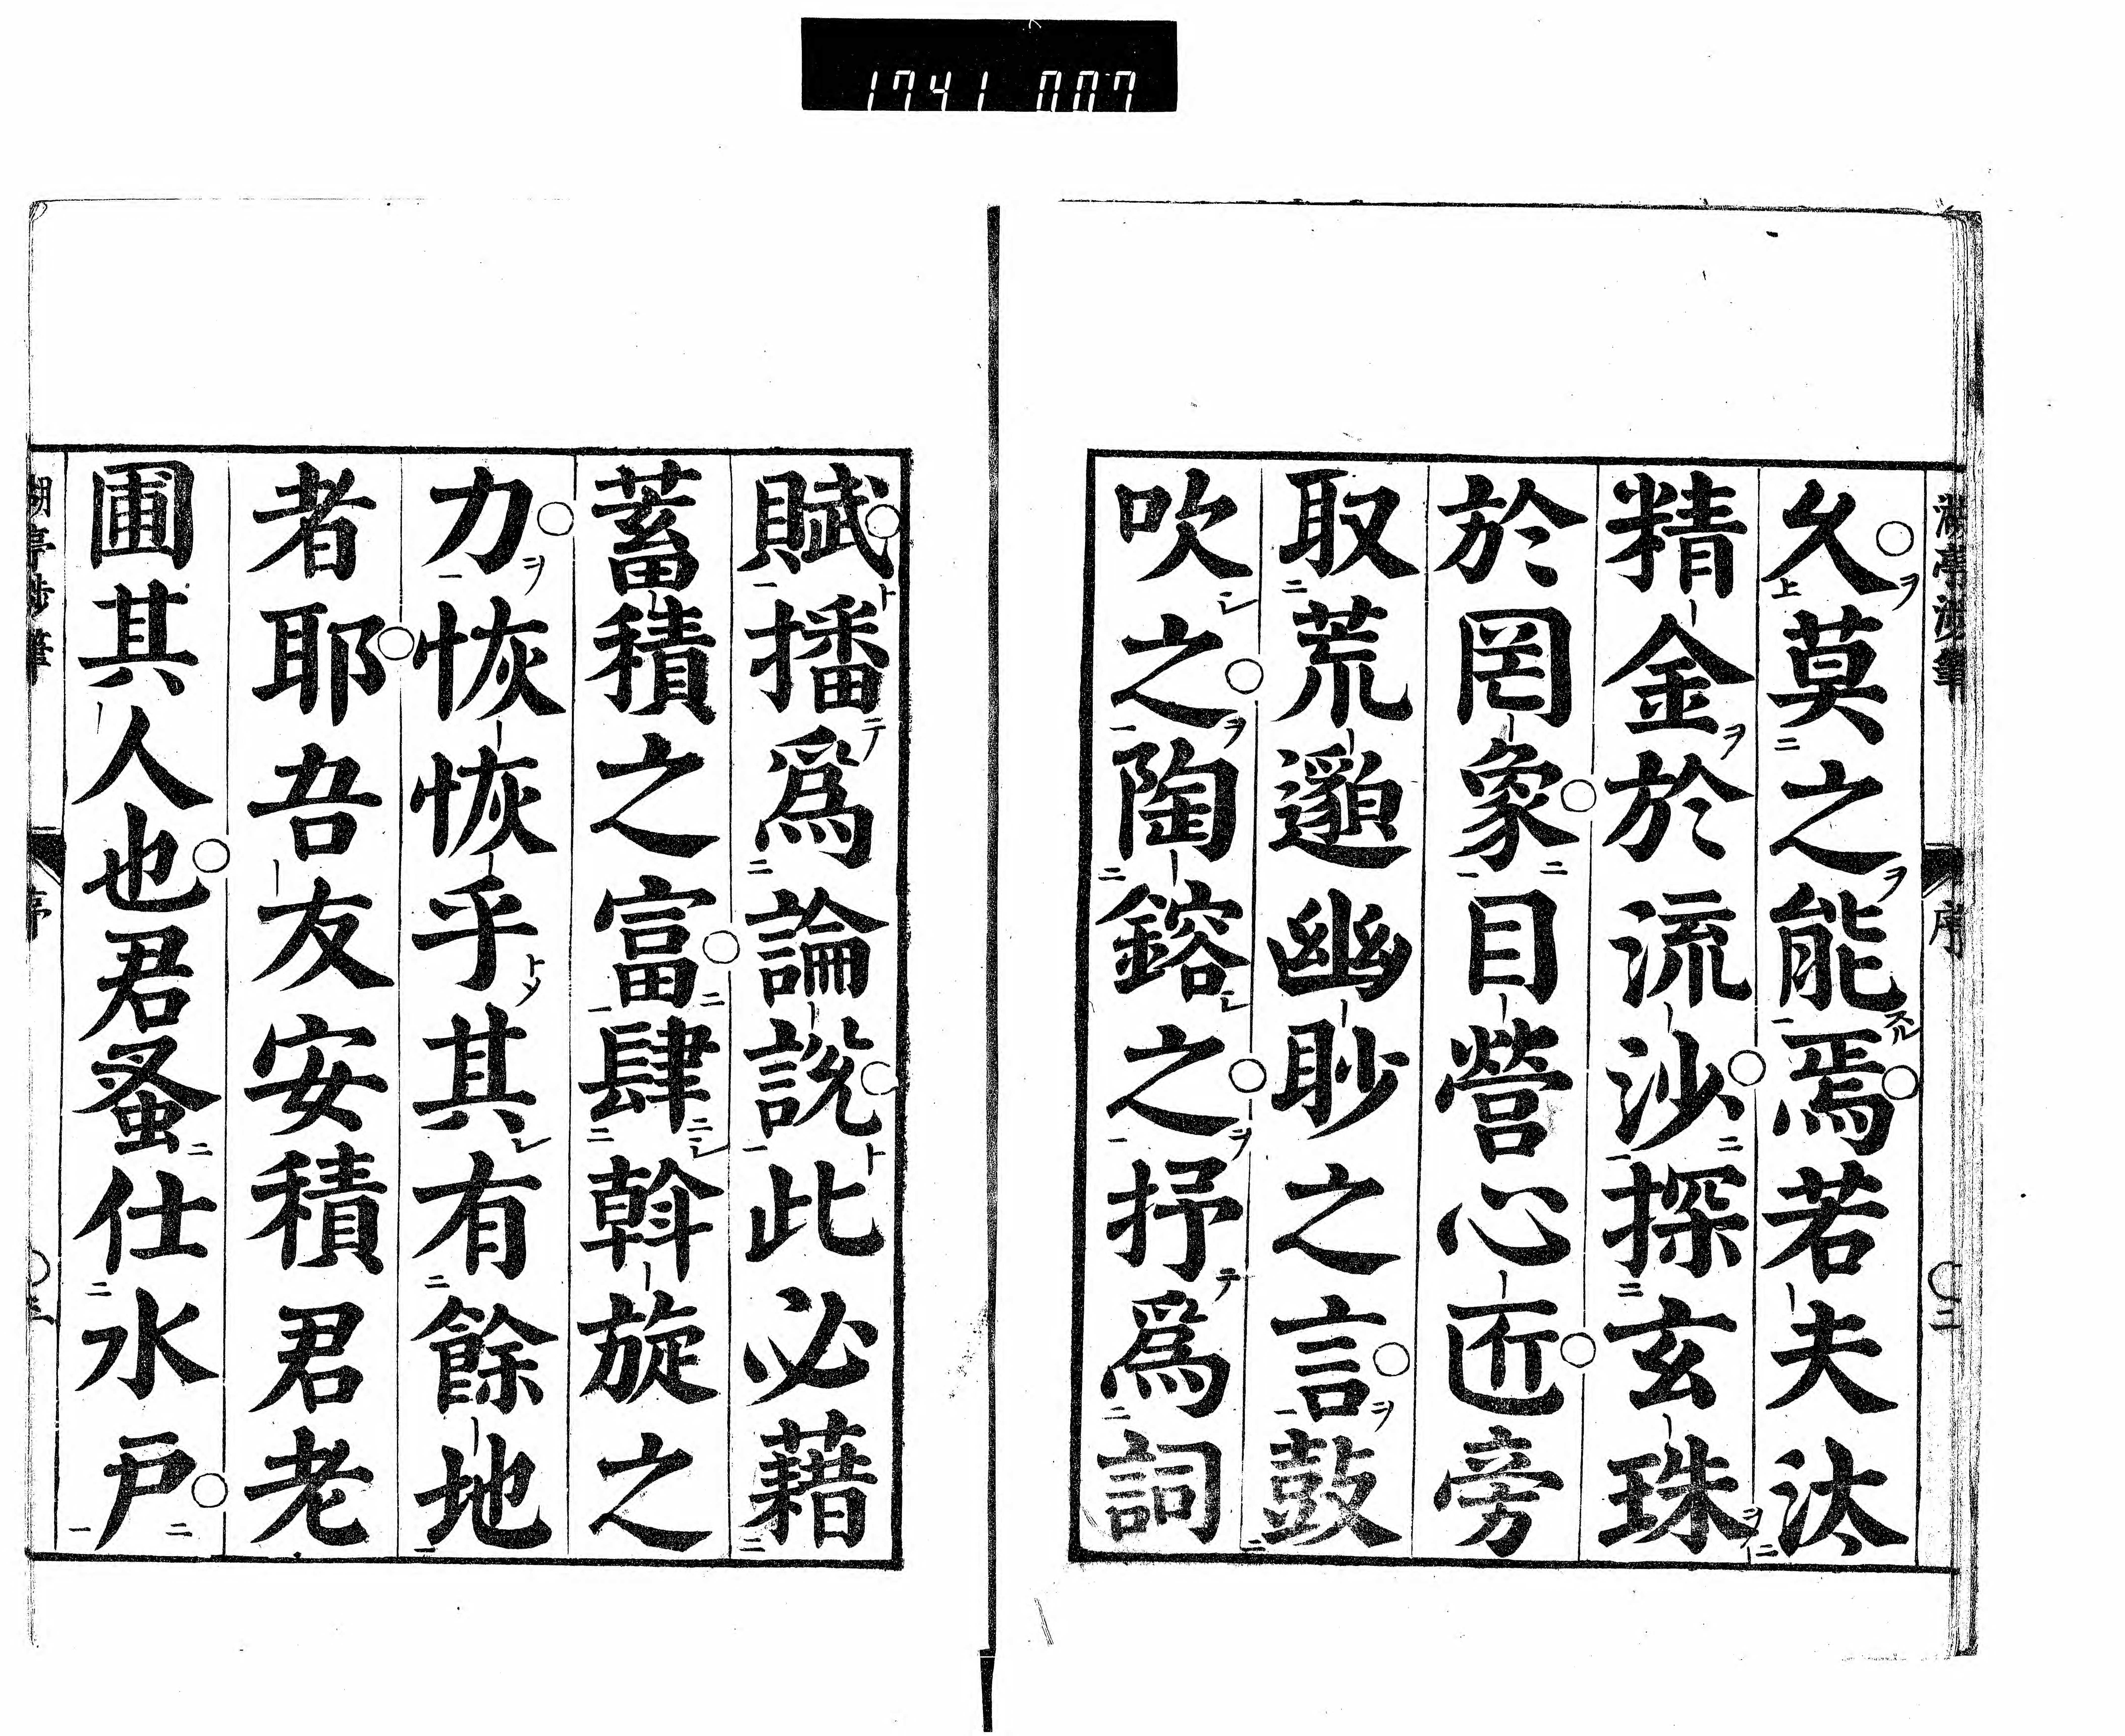 1741 007
久莫之能焉若夫汰
精金於流沙探玄珠
於罔象目營心匠旁
取荒邈幽眇之言鼓
吹之陶鎔之抒爲詞
賦播爲論說此必藉
蓄積之富肆斡旋之
力恢恢乎其有餘地
者耶吾友安積君老
圃其人也君蚤仕水
戸
序